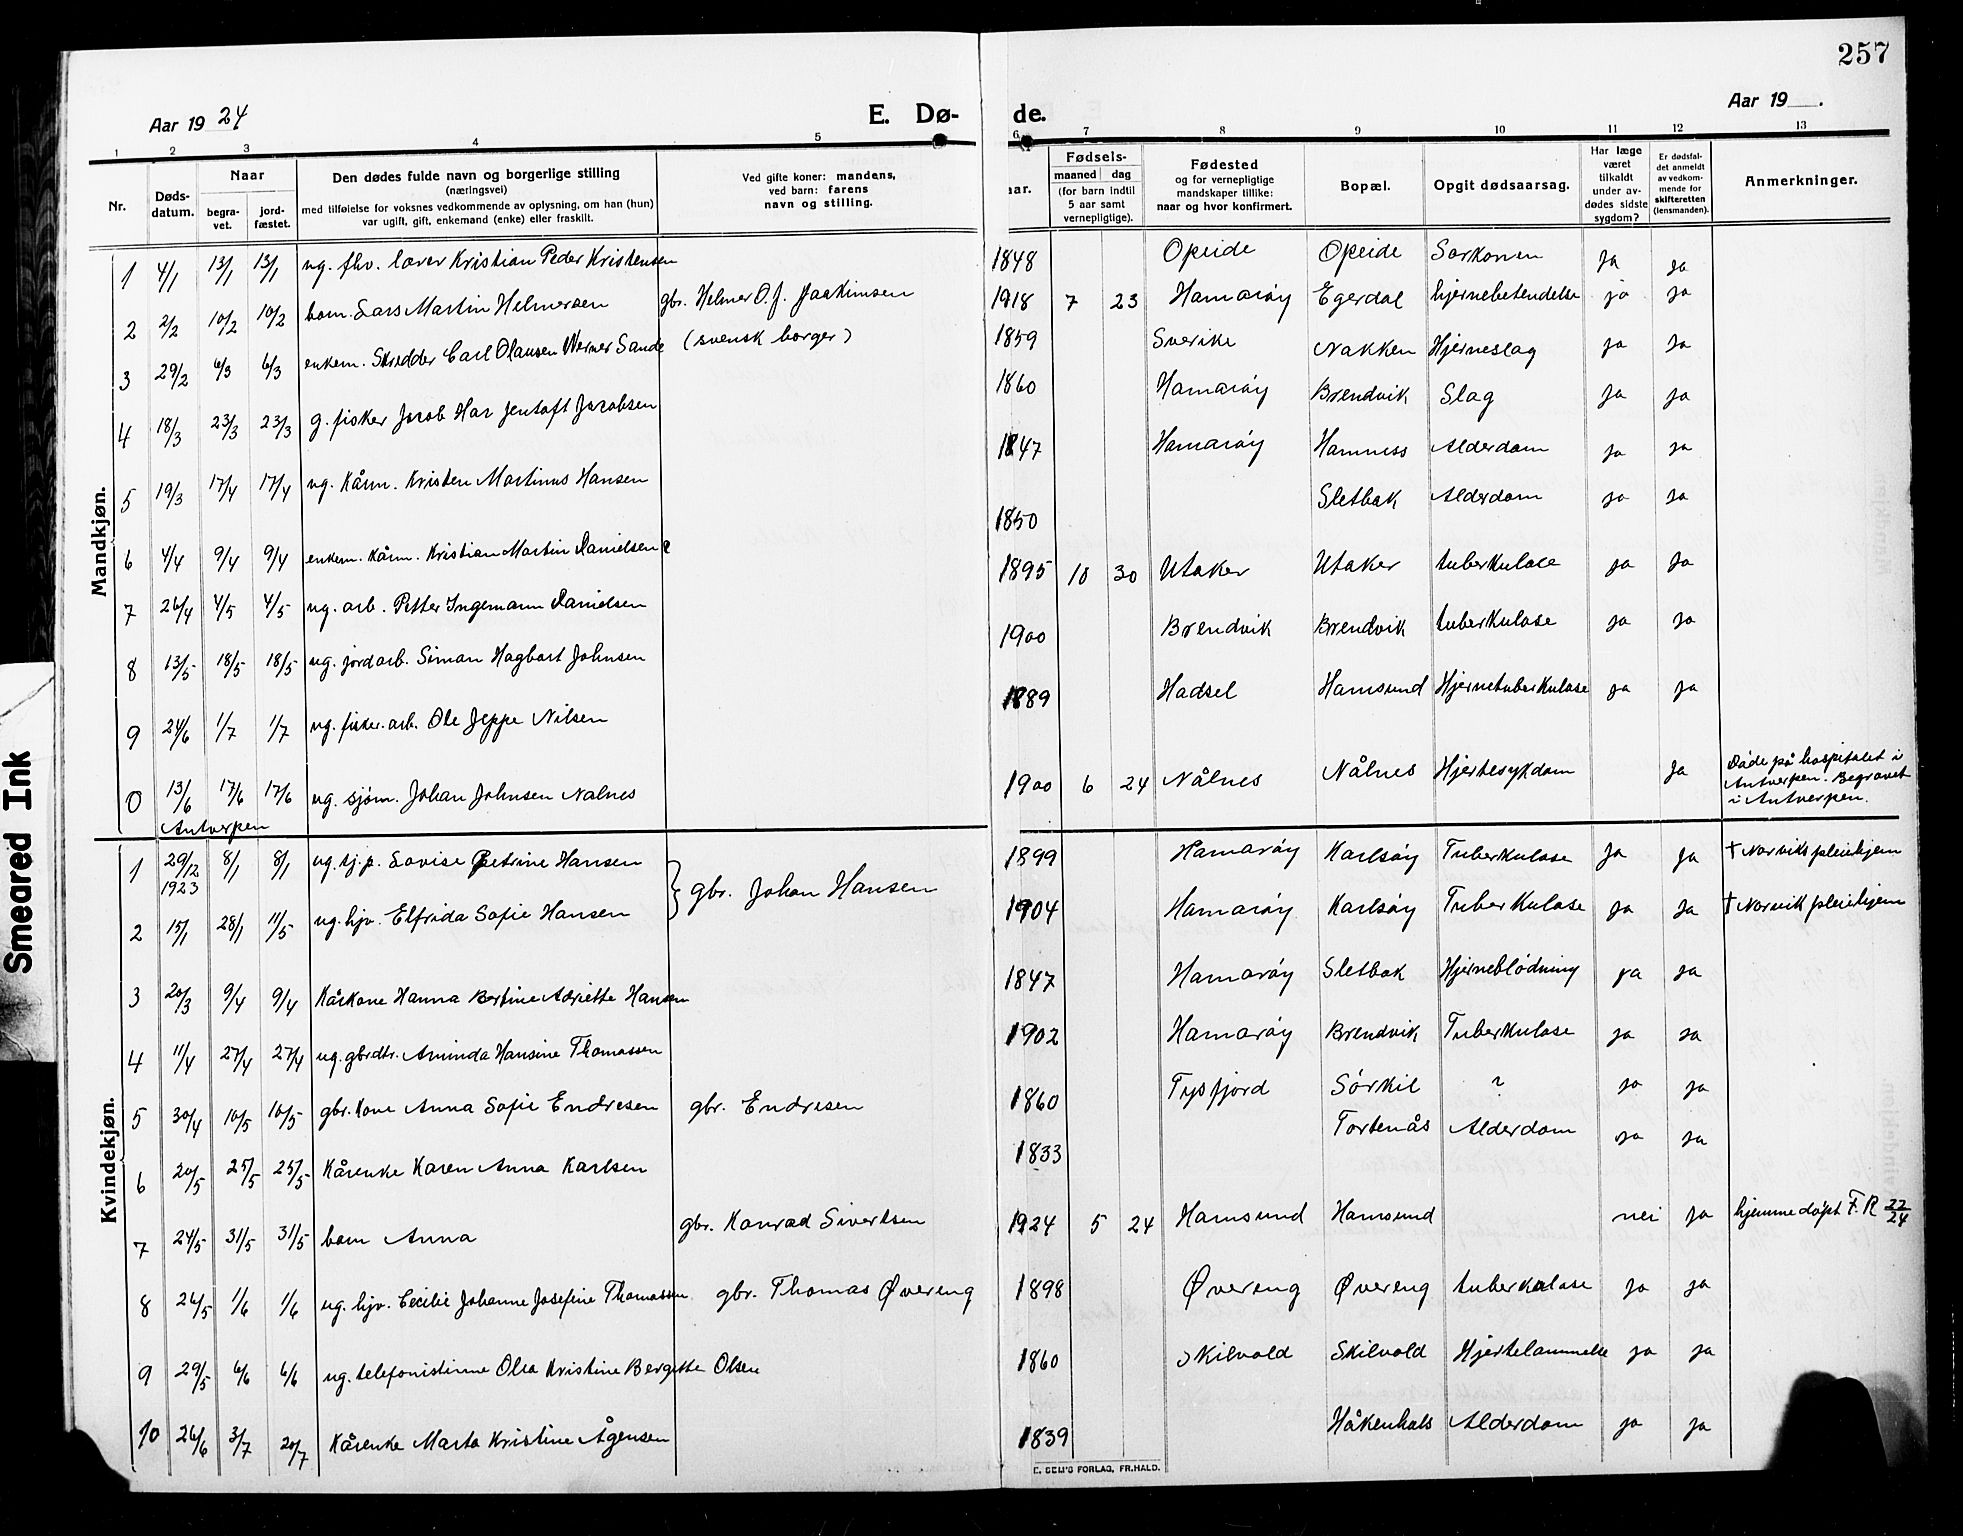 257
Aar 1924
E. Dø-
de.
Aar 19 .
1 2 3 4 5 6 7 8 9 10 11 12 13
Nr.
Døds-
datum.
Naar
begra-
vet.
jord-
fæstet.
Den dødes fulde navn og borgerlige stilling
(næringsvei)
med tilføielse for voksnes vedkommende av oplysning, om han (hun)
var ugift, gift, enkemand (enke) eller fraskilt.
Ved gifte koner: mandens,
ved barn: farens
navn og stilling.
aar.
Fødsels-
maaned dag
(for barn indtil
5 aar samt
vernepligtige).
Fødested
og for vernepligtige
mandskaper tillike:
naar og hvor konfirmert.
Bopæl.
Opgit dødsaarsag.
Har læge
været
tilkaldt
under av-
dødes sidste
sygdom?
Er dødsfal-
det anmeldt
av vedkom-
mende for
skifteretten
(lensmanden).
Anmerkninger.
Mandkjøn.
1 4/1 13/1 13/1 ug. fhv. lærer Kristian Peder Kristensen 1848 Opeide Opeide Sarkomen ja ja
2 2/2 10/2 10/2 barn. Lars Martin Helmersen gbr. Helmer O. J. Joakimsen 1918 7 23 Hamarøy Egerdal hjernebetendelse ja ja
3 29/2 6/3 6/3 enkem. Skredder Carl Olausen Werner Sande (svensk borger) 1859 Sverike Nakken Hjerneslag ja ja
4 18/3 23/3 23/3 g. fisker Jacob Har Jentoft Jacobsen 1860 Hamarøy Brendvik Slag ja ja
5 19/3 17/4 17/4 ug. Kårm. Kristen Martinus Hansen 1847 Hamarøy Hamness Alderdom ja ja
6 4/4 9/4 9/4 enkem. Kårm. Kristian Martin Danielsen 1850 Sletbak Alderdom ja ja
7 26/4 4/5 4/5 ug. arb. Petter Ingemann Danielsen 1895 10 30 Utaker Utaker tuberkulose ja ja
8 13/5 18/5 18/5 ug. jordarb. Simon Hagbart Johnsen 1900 Brendvik Brendvik tuberkulose ja ja
9 24/6 1/7 1/7 ug. fisker. arb. Ole Jeppe Nilsen 1889 Hadsel Hamsund Hjernetuberkulose ja ja
0 13/6 17/6 17/6 ug. sjøm. Johan Johnsen Nalnes 1900 6 24 Nålnes Nålnes Hjertesykdom ja Døde på hospitalet i
Antverpen. Begravet
i Antverpen.
Antverpen
Kvindekjøn.
1 29/12 1923 8/1 8/1 ug. tj. p. Lovise Petrine Hansen } gbr. Johan Hansen 1899 Hamarøy Karlsøy Tuberkulose ja ja † Narviks pleiehjem
2 15/1 28/1 11/5 ug. hjv. Elfrida Sofie Hansen 1904 Hamarøy Karlsøy Tuberkulose ja ja † Narvik pleiehjem
3 20/3 9/4 9/4 Kårkone Hanna Bertine Adriette Hansen 1847 Hamarøy Sletbak Hjerneblødning ja ja
4 11/4 27/4 27/4 ug. gbrdtr. Aminda Hansine Thomassen 1902 Hamarøy Brendvik Tuberkulose ja ja
5 30/4 10/5 10/5 gbr. Kone Anna Sofie Endresen gbr. Endresen 1860 Tysfjord Sørkil ? ja ja
6 20/5 25/5 25/5 Kårenke Karen Anna Karlsen 1833 Tortenås Alderdom ja ja
7 24/5 31/5 31/5 barn Anna gbr. Konrad Sivertsen 1924 5 24 Hamsund Hamsund nei ja hjemmedøpt F.R 22/24
8 26/5 1/6 1/6 ug. hjv. Cecilie Johanne Josefine Thomassen gbr. Thomas Øvereng 1898 Øvereng Øvereng tuberkulose ja ja
9 29/5 6/6 6/6 ug. telefonistinne Olea Kristine Bergitte Olsen 1860 Skilvold Skilvold Hjertelammelse ja ja
10 26/6 3/7 20/7 Kårenke Marta Kristine Ågensen 1839 Håkenhals Alderdom ja ja
E. SEM'S FORLAG, FR.HALD.
Smeared Ink